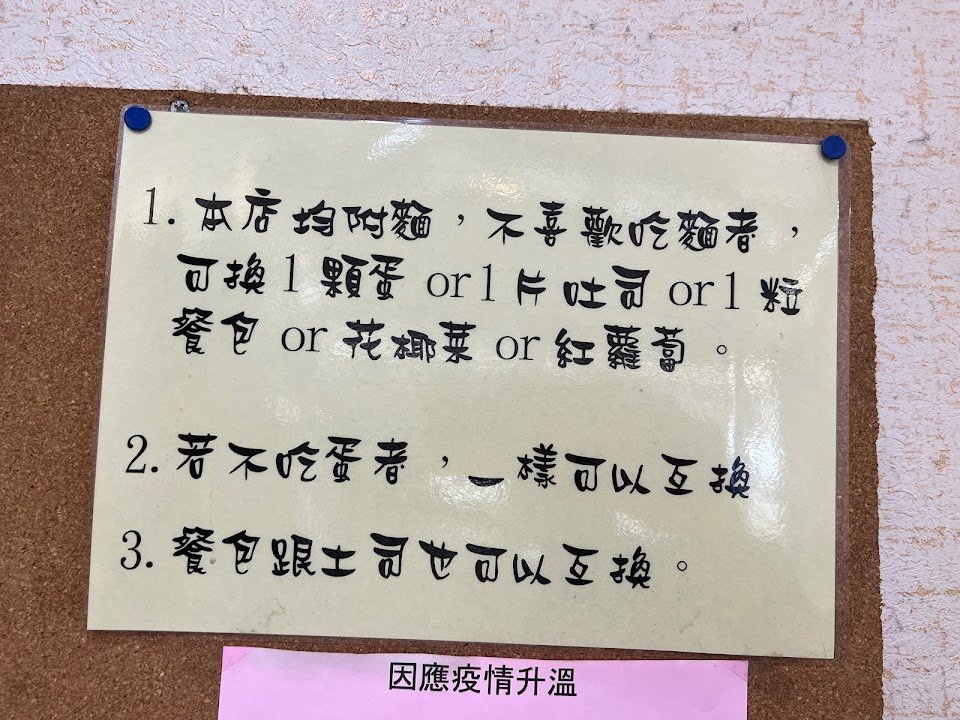 1. 本店均附麵，不喜歡吃麵者，
可換1顆蛋 or 1片吐司 or 1粒
餐包 or 花椰菜 or 紅蘿蔔。
2. 若不吃蛋者，一樣可以互換
3. 餐包跟土司也可以互換。
因應疫情升溫